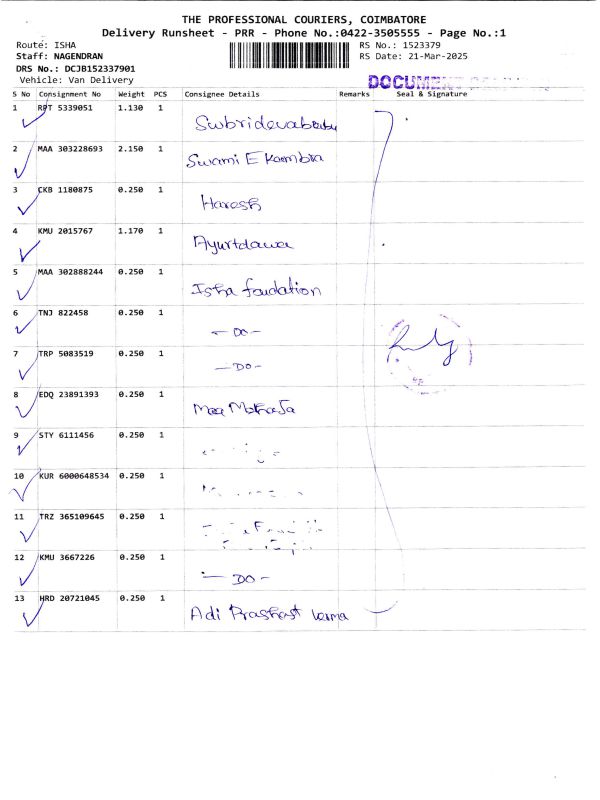 THE PROFESSIONAL COURIERS, COIMBATORE
Delivery Runsheet - PRR - Phone No.:0422-3505555 - Page No.:1
Route: ISHA
RS No.: 1523379
Staff: NAGENDRAN
RS Date: 21-Mar-2025
DRS No.: DCJB152337901
Vehicle: Van Delivery
DOCUMENT
S No Consignment No Weight PCS Consignee Details Remarks Seal & Signature
1 RPT 5339051 1.130 1
2 MAA 303228693 2.150 1 Swami E
3 CKB 1180875 0.250 1 Haresh
4 KMU 2015767 1.170 1
5 MAA 302888244 0.250 1 Isha foudation
6 TNJ 822458 0.250 1 - DO -
7 TRP 5083519 0.250 1 - DO -
8 EDQ 23891393 0.250 1 Maa
9 STY 6111456 0.250 1
10 KUR 6000648534 0.250 1
11 TRZ 365109645 0.250 1
12 KMU 3667226 0.250 1 - DO -
13 HRD 20721045 0.250 1 Adi Prashast verma